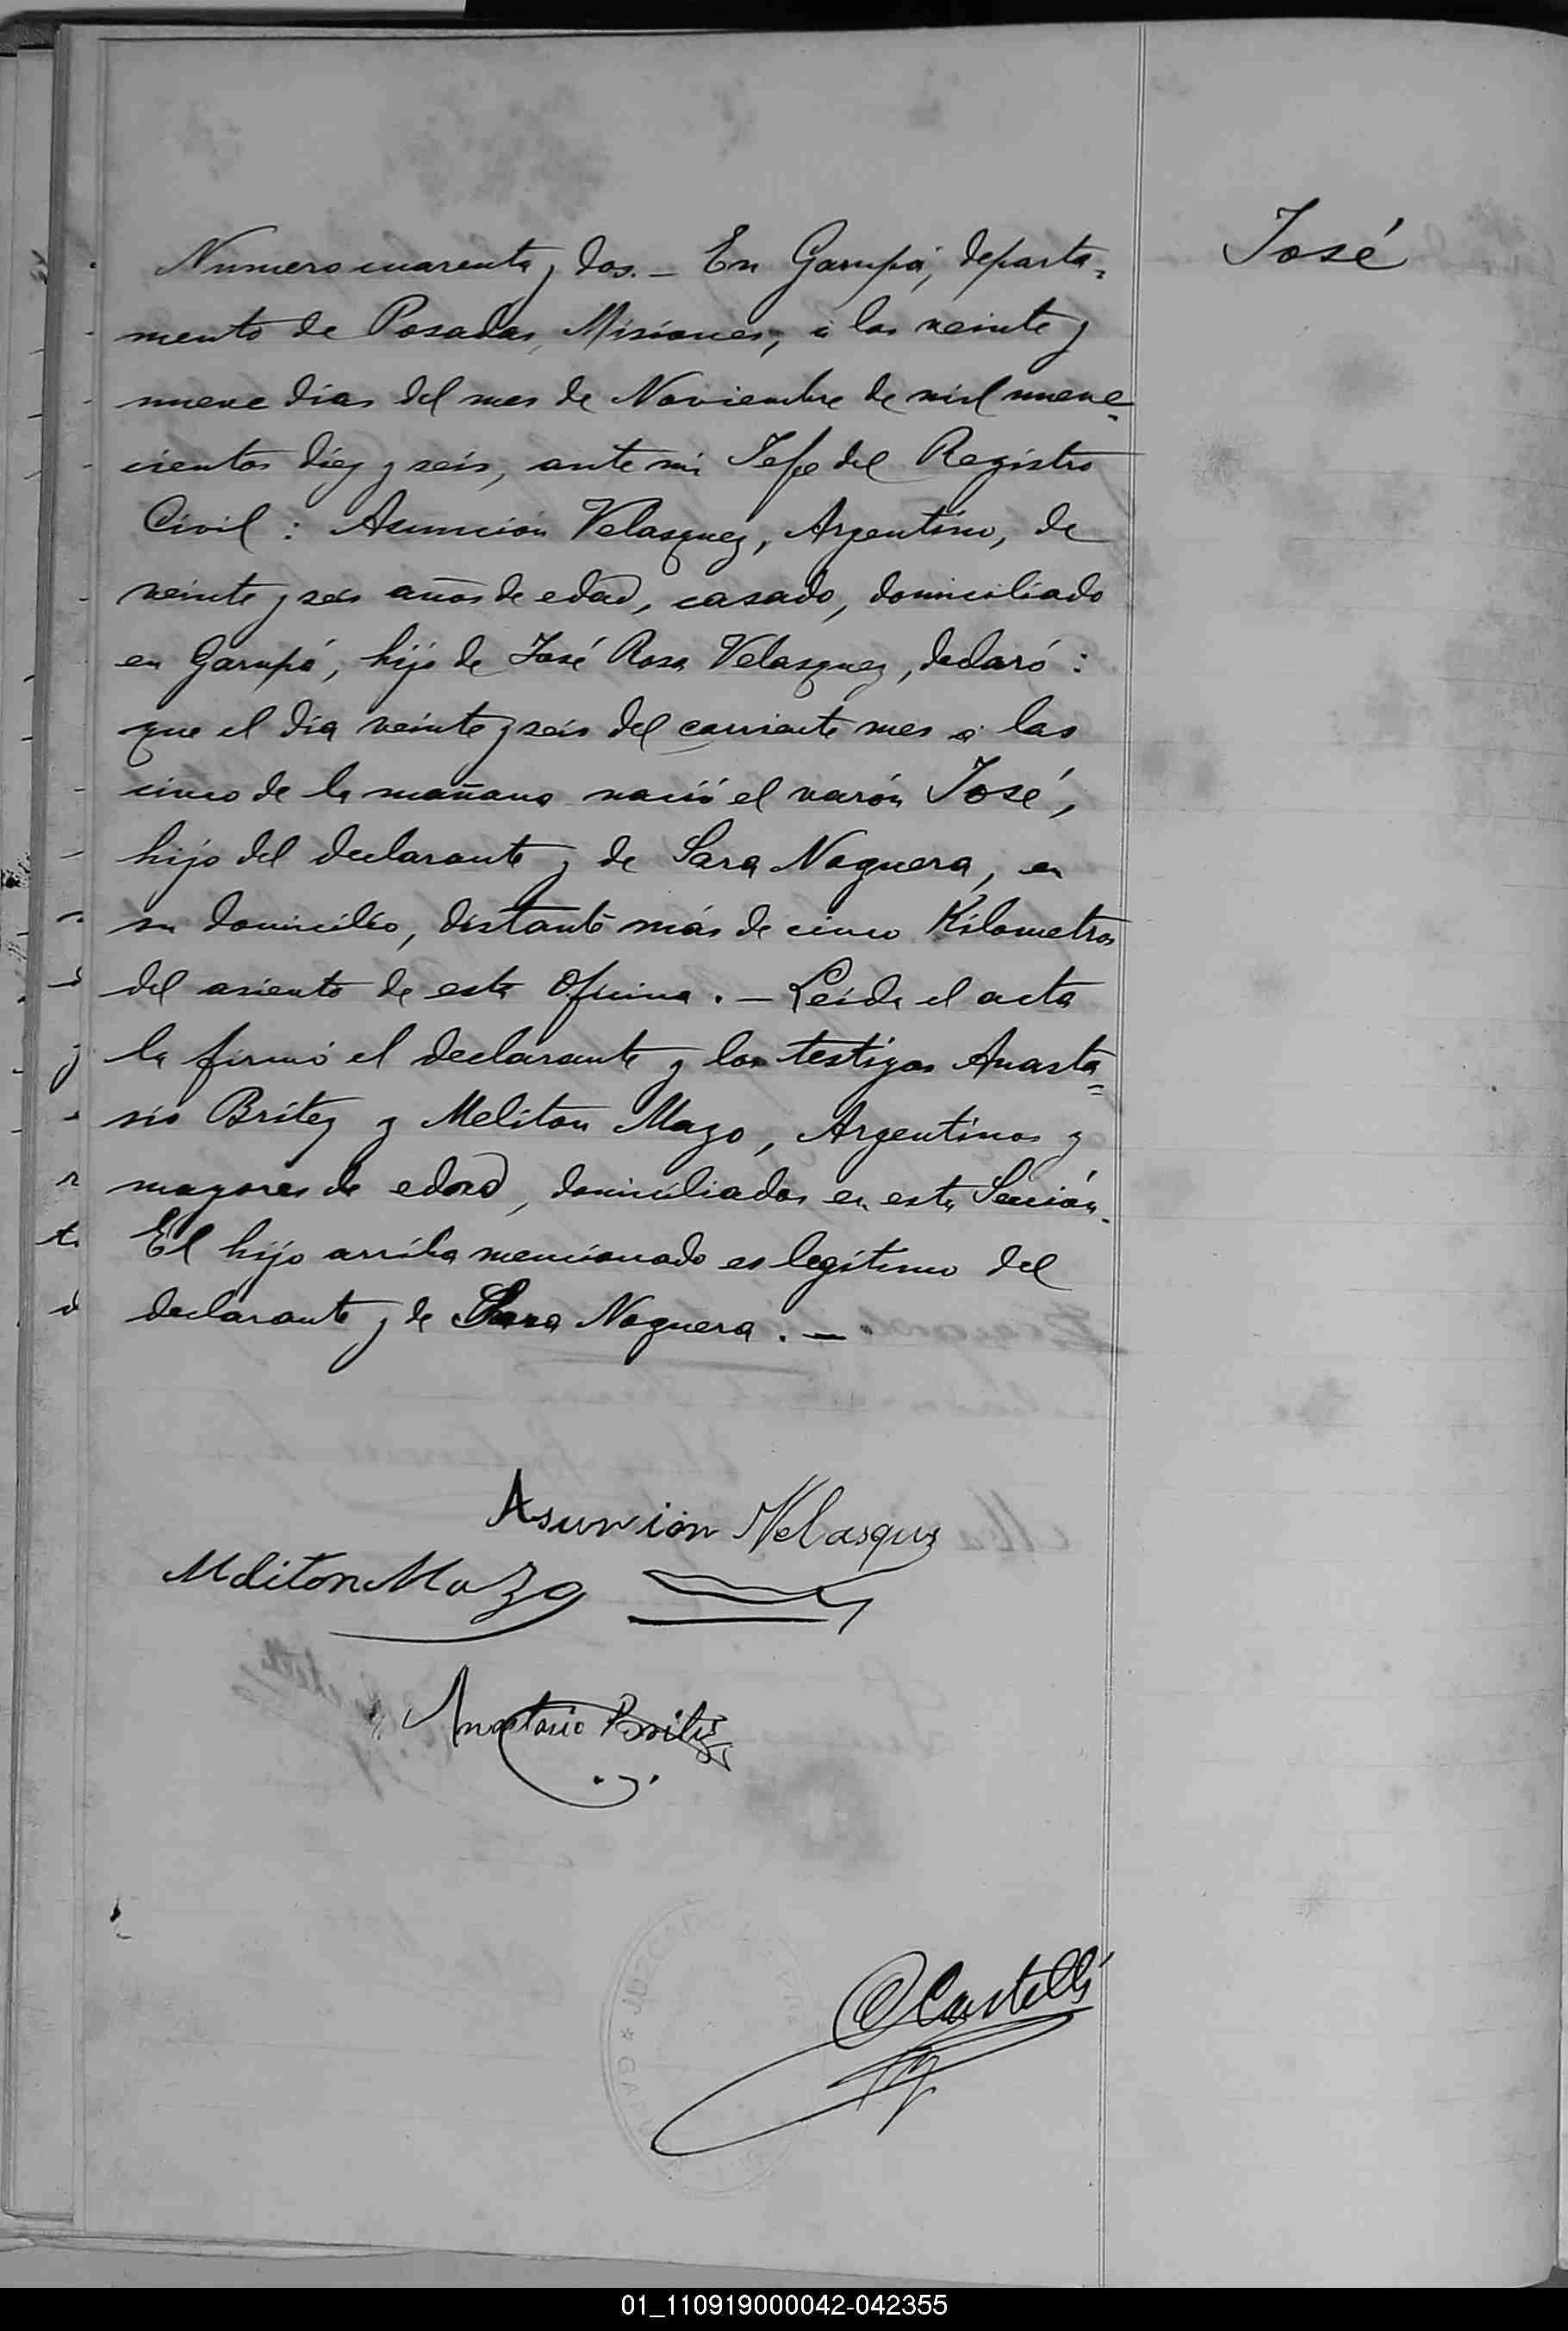 José
Numero cuarenta y dos. – En Garupá, departa=
mento de Posadas, Misiones, á los veinte y
nueve dias del mes de Noviembre de mil nueve=
cientos diez y seis, ante mi Jefe del Registro
Civil : Asunción Velasquez, Argentino, de
veinte y seis años de edad, casado, domiciliado
en Garupá, hijo de José Rosa Velasquez, declaró :
que el día veinte y seis del corriente mes á las
cinco de la mañana nació el varón José,
hijo del declarante y de Sara Noguera, en
su domicilio, distante más de cinco Kilometros
del asiento de esta Oficina. – Leida el acta
la firmó el declarante y los testigos Anasta=
sio Britez y Meliton Mazo, Argentinos y
mayores de edad, domiciliados en esta Sección.
El hijo arriba mencionado es legítimo del
declarante y de Sara Noguera. –
Asunción Velasquz
Meliton Mazo
Anastasio Britez
Castelli
JUZGADO
01_110919000042-042355